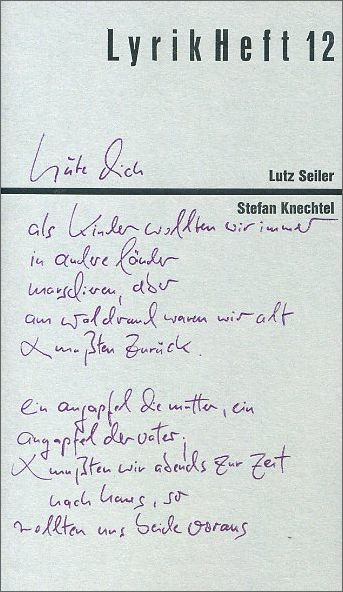 LyrikHeft 12
hüte dich
Lutz Seiler
Stefan Knechtel
als kinder wollten wir immer
in andere länder
marschieren, aber
am waldrand waren wir alt
& mußten zurück.
ein augapfel die mutter, ein
augapfel der vater;
& mußten wir abends zur zeit
nach haus, so
rollten uns beide voraus